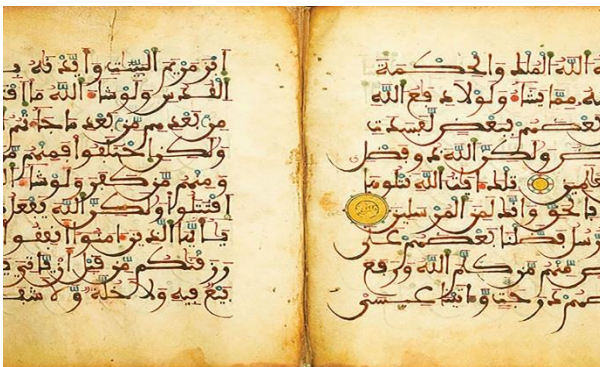 الله الملك والحكمة
مما يشاء ولولا دفع الله
بعضهم ببعض لفسدت
ولكن الله ذو فضل
تلك ءايت الله نتلوها
بالحق وإنك لمن المرسلين
الرسل فضلنا بعضهم على
منهم من كلم الله ورفع
درجت وءاتينا عيسى
ابن مريم البينت وأيدنه بر
القدس ولو شاء الله ما اقتـ
من بعدهم من بعد ما جاءتهم
ولكن اختلفوا فمنهم
ومنهم من كفر ولو شاء
اقتتلوا ولكن الله يفعل
يأيها الذين ءامنوا أنفقوا
رزقنكم من قبل أن ياتي
بيع فيه ولا خلة ولا شفـ